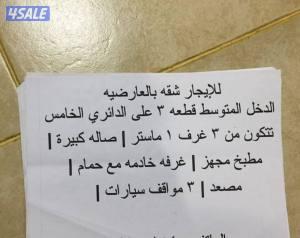 4SALE
للإيجار شقه بالعارضيه
الدخل المتوسط قطعه ٣ على الدائري الخامس
تتكون من ٣ غرف ١ ماستر | صاله كبيرة |
مطبخ مجهز | غرفه خادمه مع حمام |
مصعد | ٣ مواقف سيارات |